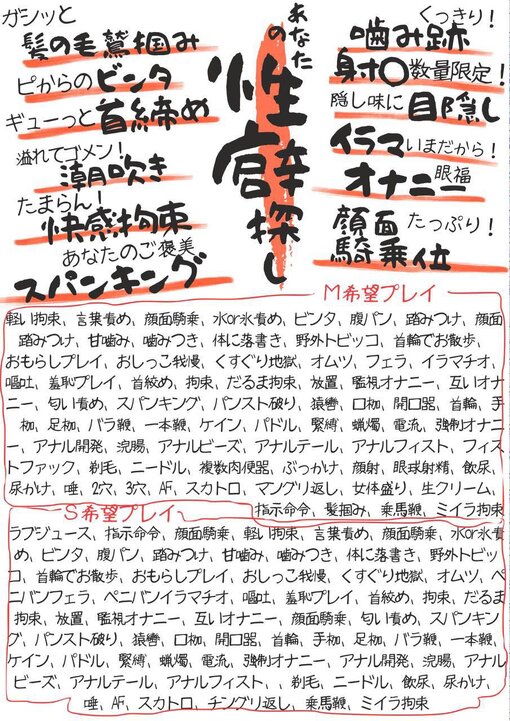 あなたの性癖探し
くっきり！
噛み跡
射〇数量限定！
隠し味に目隠し
イラマいまだから！
オナニー眼福
顔面騎乗位たっぷり！
ガシッと
髪の毛鷲掴み
ピからのビンタ
ギューっと首絞め
溢れてゴメン！
潮吹き
たまらん！
快感拘束
あなたのご褒美
スパンキング
M希望プレイ
軽い拘束、言葉責め、顔面騎乗、水or氷責め、ビンタ、腹パン、踏みつけ、顔面
踏みつけ、甘噛み、噛みつき、体に落書き、野外トビッコ、首輪でお散歩、
おもらしプレイ、おしっこ我慢、くすぐり地獄、オムツ、フェラ、イラマチオ、
嘔吐、羞恥プレイ、首絞め、拘束、だるま拘束、放置、監視オナニー、互いオナ
ニー、匂い責め、スパンキング、パンスト破り、猿轡、口枷、開口器、首輪、手
枷、足枷、バラ鞭、一本鞭、ケイン、パドル、緊縛、蝋燭、電流、強制オナニ
ー、アナル開発、浣腸、アナルビーズ、アナルテール、アナルフィスト、フィス
トファック、剃毛、ニードル、複数肉便器、ぶっかけ、顔射、眼球射精、飲尿、
尿かけ、唾、2穴、3穴、AF、スカトロ、マングリ返し、女体盛り、生クリーム、
指示命令、髪掴み、乗馬鞭、ミイラ拘束
S希望プレイ
ラブジュース、指示命令、顔面騎乗、軽い拘束、言葉責め、顔面騎乗、水or氷責
め、ビンタ、腹パン、踏みつけ、甘噛み、噛みつき、体に落書き、野外トビッ
コ、首輪でお散歩、おもらしプレイ、おしっこ我慢、くすぐり地獄、オムツ、ペ
ニバンフェラ、ペニバンイラマチオ、嘔吐、羞恥プレイ、首絞め、拘束、だるま
拘束、放置、監視オナニー、互いオナニー、顔面騎乗、匂い責め、スパンキン
グ、パンスト破り、猿轡、口枷、開口器、首輪、手枷、足枷、バラ鞭、一本鞭、
ケイン、パドル、緊縛、蝋燭、電流、強制オナニー、アナル開発、浣腸、アナル
ビーズ、アナルテール、アナルフィスト、、剃毛、ニードル、飲尿、尿かけ、
唾、AF、スカトロ、チングリ返し、乗馬鞭、ミイラ拘束